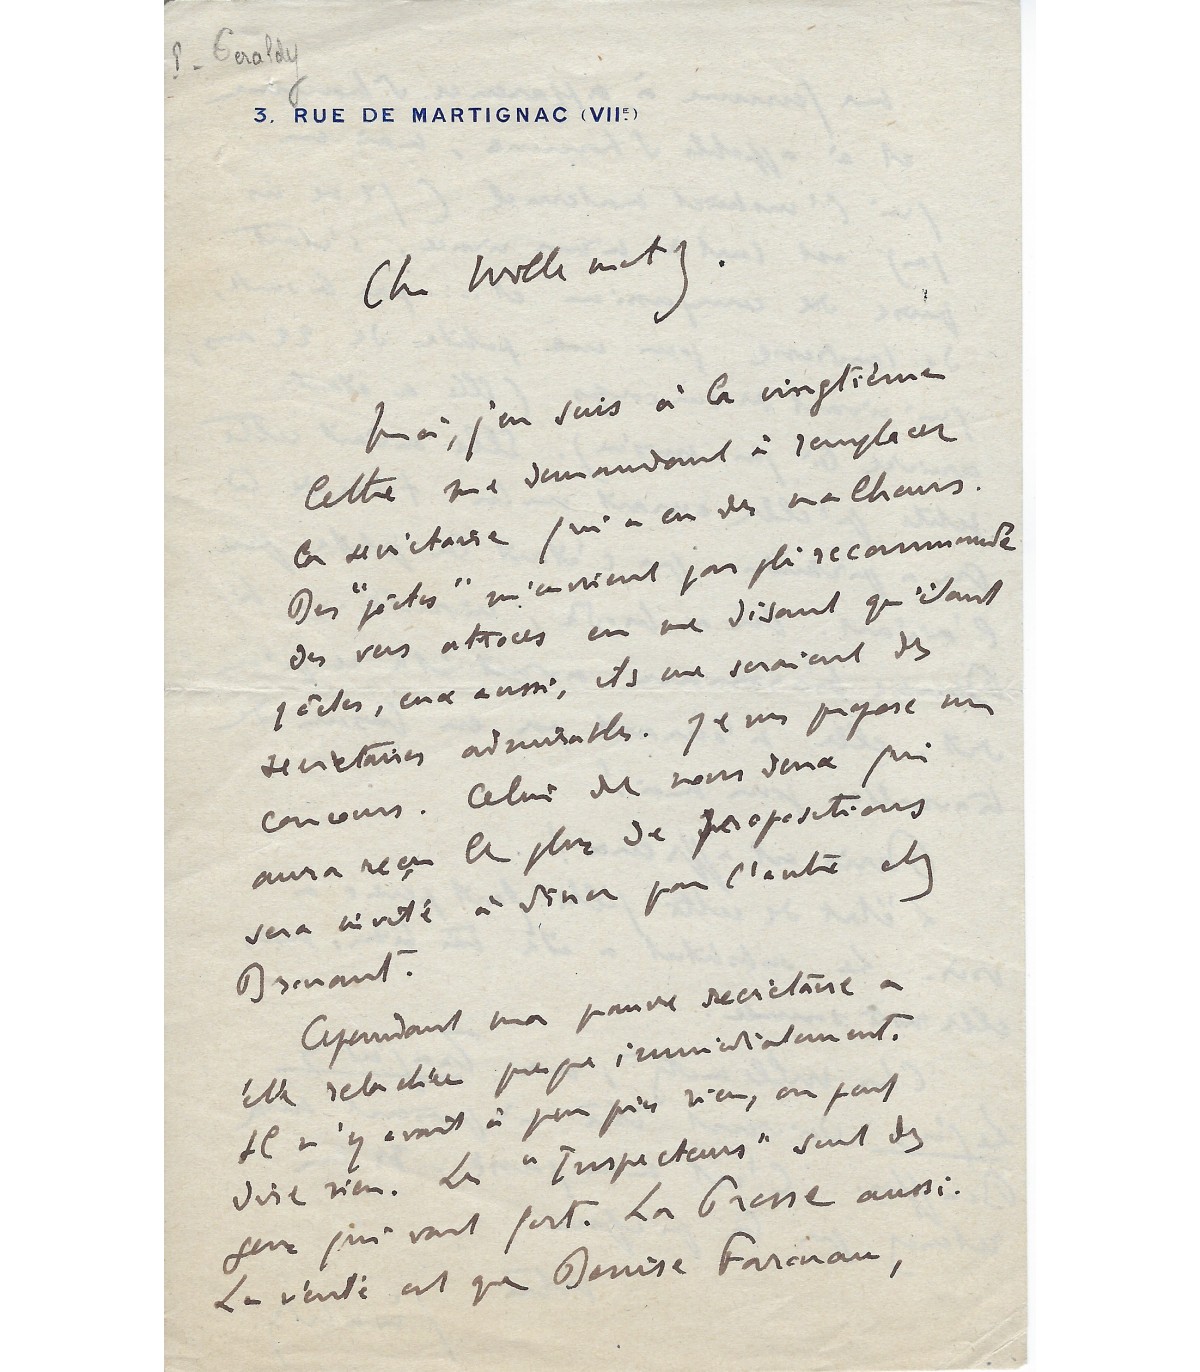 P. Geraldy
3. RUE DE MARTIGNAC (VIIE)
Cher Willemetz.
Moi, j'en suis à la vingtième
lettre me demandant à remplacer
la secrétaire qui a eu des malheurs.
Des "poètes" m'envoient par pli recommandé
des vers atroces en me disant qu'étant
poètes, eux aussi, ils me seraient des
secrétaires admirables. Je vous propose un
concours. Celui de nous deux qui
aura reçu le plus de propositions
sera invité à dîner par l'autre chez
Drouant.
Cependant ma pauvre secrétaire a
été relachée presque immédiatement.
Il n'y avait à peu près rien, on peut
dire rien. Les "Inspecteurs" sont des
gens qui vont fort. La Presse aussi.
La vérité est que Denise